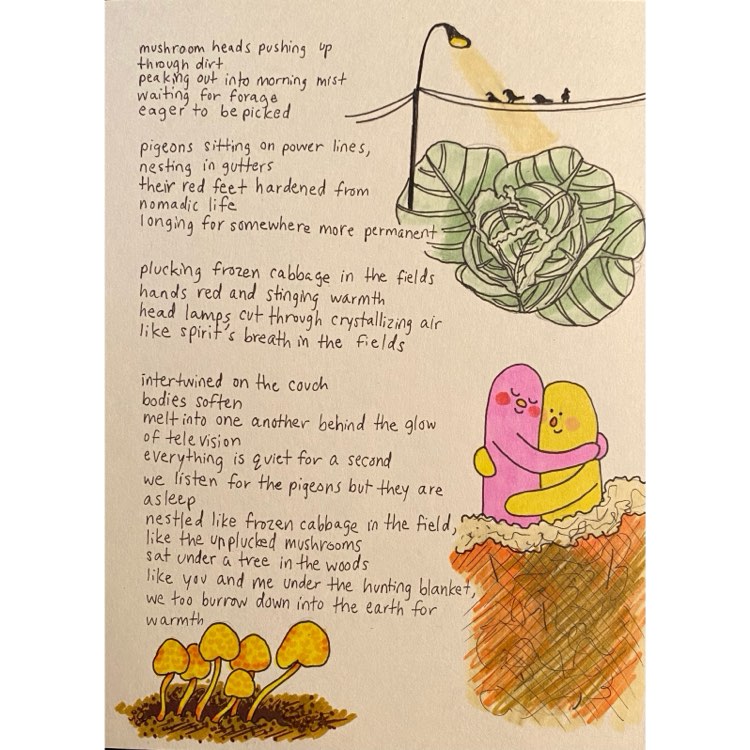 mushroom heads pushing up
through dirt
peaking out into morning mist
waiting for forage
eager to be picked
pigeons sitting on power lines,
nesting in gutters
their red feet hardened from
nomadic life
longing for somewhere more permanent
plucking frozen cabbage in the fields
hands red and stinging warmth
head lamps cut through crystallizing air
like spirit's breath in the fields
intertwined on the couch
bodies soften
melt into one another behind the glow
of television
everything is quiet for a second
we listen for the pigeons but they are
asleep
nestled like frozen cabbage in the field,
like the unplucked mushrooms
sat under a tree in the woods
like you and me under the hunting blanket,
we too burrow down into the earth for
warmth